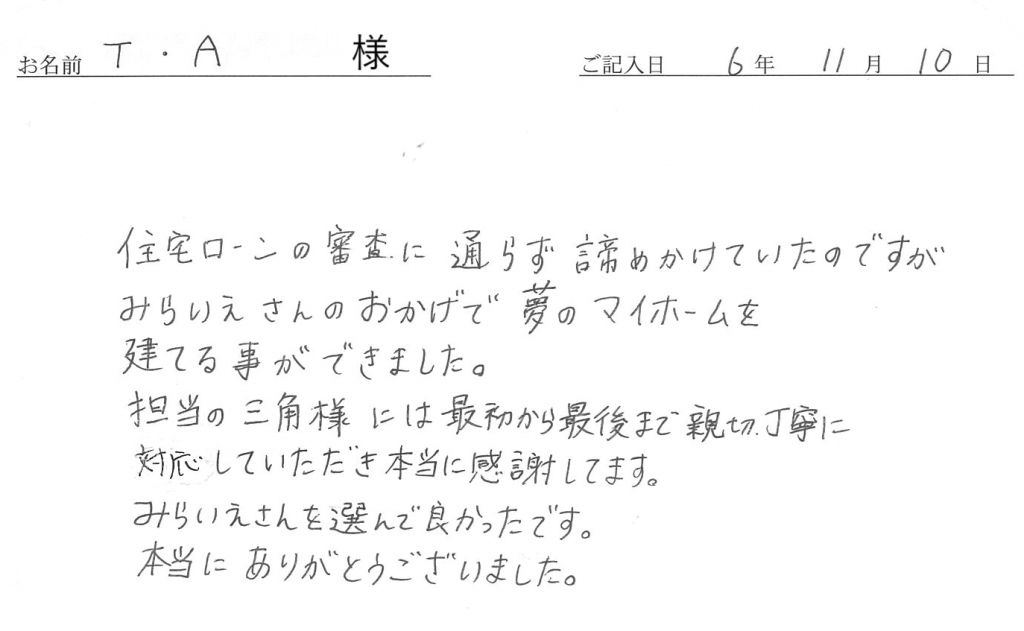 お名前 T・A 様 ご記入日 6年 11月 10日
住宅ローンの審査に通らず諦めかけていたのですが
みらいえさんのおかげで夢のマイホームを
建てる事ができました。
担当の三角様には最初から最後まで親切丁寧に
対応していただき本当に感謝してます。
みらいえさんを選んで良かったです。
本当にありがとうございました。